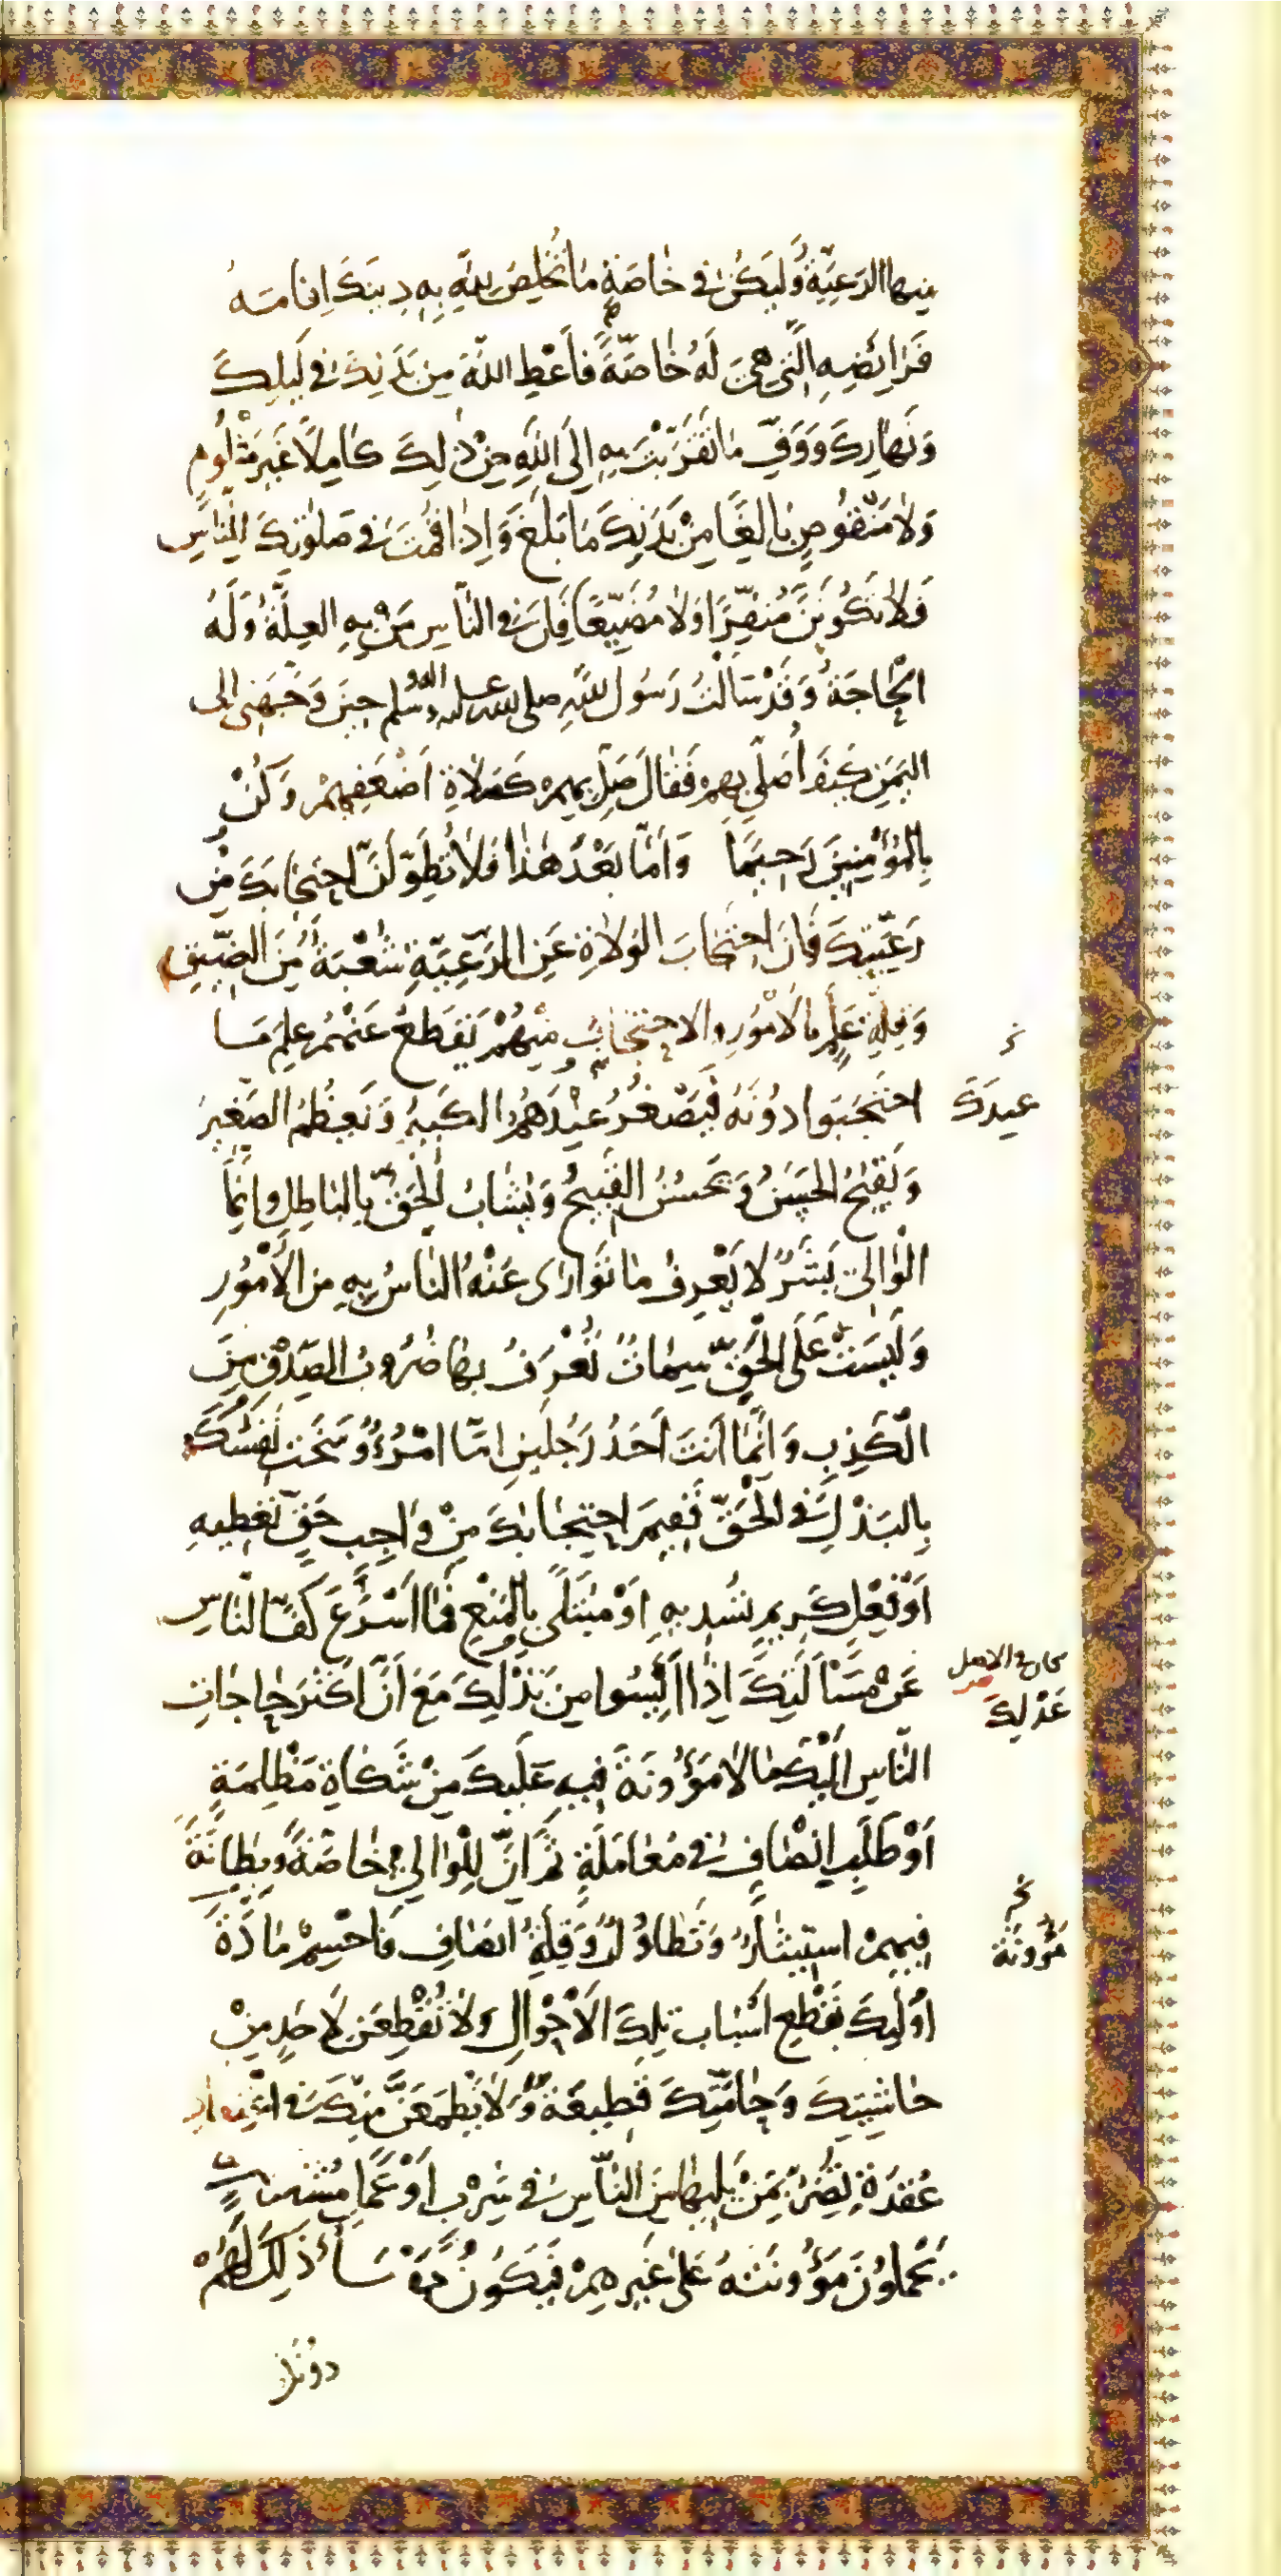 منها الرَعِيَّةُ وَليَكُنْ فى خَاصَةِ مَا تُخْلِصُ لِلّهِ بِهِ دِينَكَ اِقَامَةُ
فَرَائِضِهِ الَّتى هِىَ لَهُ خَاصَّةً فاَعْطِ اللّهَ مِن بَدَنِكَ فى لَيلِكَ
وَنَهارِكَ وَوَفِّ مَا تَقَرَّبْتَ بِهِ إلَى اللهِ مِنْ ذٰلِكَ كَامِلًا غَيرَ مَثْلُومٍ
وَلَا مَنْقُوصٍ بَالِغًا مِنْ بَدَنِكَ مَا بَلَغَ وَاِذَا قُمْتَ فى صَلٰوتِكَ لِلنَّاسِ
فَلَا تَكُونَنَّ مُنَفِّرًا وَلَا مُضَيِّعًا فَإِنَّ فى النَّاسِ مَنْ بِهِ العِلَّةُ وَلَهُ
الْحَاجَةُ وَقَدْ سَاَلْتُ رَسُولَ اللهِ صلى الله عليه واله وسلم حِينَ وَجَّهَنِى إلى
اليَمَنِ كَيفَ اُصَلِّى بِهِمْ فَقَالَ صَلِّ بِهِمْ كَصَلَاةِ اَضْعَفِهِمْ وَكُنْ
بِالْمُؤْمِنِينَ رَحِيمًا وَاَمَّا بَعْدَ هٰذَا فَلَا تُطَوِّلَنَّ احْتِجَابَكَ مِنْ
رَعِيَّتِكَ فَإِنَّ احْتِجَابَ الوُلَاةِ عَنِ الرَّعِيَّةِ شُعْبَةٌ مِنَ الضِّيقِ
وَقِلَّةُ عِلْمٍ بِالْاُمُورِ والاحْتِجَابُ مِنْهُمْ يَقطَعُ عَنْهُمْ عِلمَ مَا
احْتَجَبُوا دُونَهُ فَيَصْغُرُ عِنْدَهُمُ الكَبِيرُ وَيَعظُمُ الصَّغِيرُ
عِندَكَ
وَيَقبُحُ الحَسَنُ وَيَحسُنُ القَبِيحُ وَيُشَابُ الْحَقُّ بِالبَاطِلِ وَاِنَّمَا
الْوَالِى بَشَرٌ لَا يَعْرِفُ مَا تَوَارَى عَنْهُ النَّاسُ بِهِ مِنَ الْاُمُورِ
وَلَيسَتْ عَلَى الْحَقِّ سِمَاتٌ تُعْرَفُ بِهَا ضُرُوبُ الصِّدْقِ مِنَ
الْكَذِبِ وَاِنَّمَا اَنتَ اَحَدُ رَجُلَينِ اِمَّا امْرُؤٌ سَخَت نَفسُكَ
بِالبَذْلِ فى الْحَقِّ فَفِيمَ احتِجَابُكَ مِنْ وَاجِبِ حَقٍّ تُعطِيهِ
اَوْ فِعْلٍ كَرِيمٍ تُسْدِيهِ اَوْ مُبْتَلًى بِالْمَنْعِ فَمَا اَسْرَعَ كَفَّ النَّاسِ
عَنْ مَسْاَلَتِكَ اِذَا اَيِسُوا مِن بَذْلِكَ مَعَ اَنَّ اَكْثَرَ حَاجَاتِ
عَدْلِكَ
النَّاسِ اِلَيْكَ مَا لَا مَؤُونَةَ فِيهِ عَلَيكَ مِنْ شَكَاةِ مَظْلِمَةٍ
اَوْ طَلَبِ اِنْصَافٍ فى مُعَامَلَةٍ ثُمَّ اِنَّ لِلْوَالِى خَاصَّةً وَبِطَانَةً
فِيهِمْ اسْتِيثَارٌ وَتَطَاوُلٌ وَقِلَّةُ اِنصَافٍ فَاحْسِمْ مَادَّةَ
مَؤُونَةَ
اُولٰئِكَ بِقَطْعِ اَسْبَابِ تِلكَ الْاَحْوَالِ وَلَا تُقْطِعَنَّ لِاَحَدٍ مِنْ
حَاشِيَتِكَ وَحَامَّتِكَ قَطِيعَةً وَلَا يَطْمَعَنَّ مِنكَ فى اعْتِقَادِ
عُقدَةٍ تَضُرُّ بِمَنْ يَلِيهَا مِنَ النَّاسِ فى شِرْبٍ اَوْ عَمَلٍ مُشْتَرَكٍ
يَحْمِلُونَ مَؤُونَتَهُ عَلَى غَيرِهِمْ فَيَكُونُ مَهْنَأُ ذٰلِكَ لَهُمْ
دُونَكَ